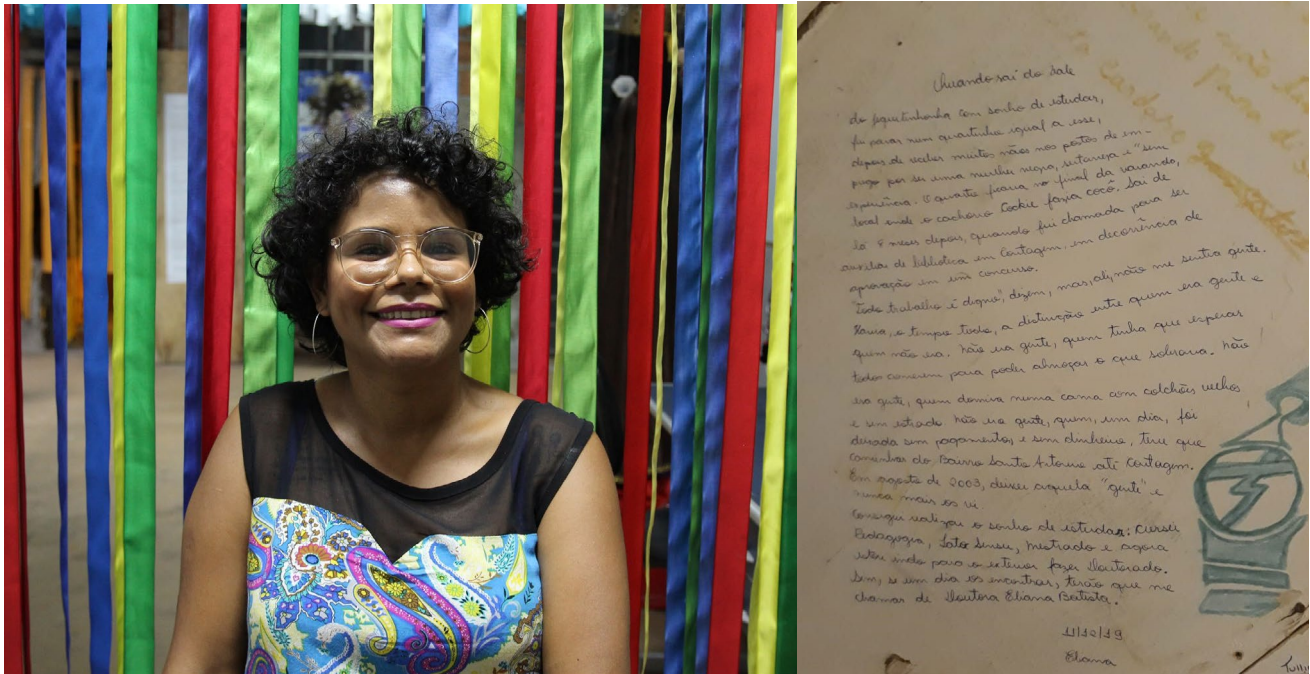 Quando saí do Vale
do Jequitinhonha com sonho de estudar,
fui parar num quartinho igual a esse,
depois de receber muitos nãos nos postos de em-
prego por ser uma mulher negra, sertaneja e "sem
experiência. O quarto ficava no final da varanda,
local onde o cachorro Cookie fazia cocô. Saí de
lá 8 meses depois, quando fui chamada para ser
auxiliar de biblioteca em Contagem, em decorrência de
aprovação em um concurso.
"Todo trabalho é digno", dizem, mas, ali, não me sentia gente.
Havia, o tempo todo, a distinção entre quem era gente e
quem não era. Não era gente, quem tinha que esperar
todos comerem para poder almoçar o que sobrava. Não
era gente, quem dormia numa cama com colchões velhos
e sem estrado. Não era gente, quem, um dia, foi
deixada sem pagamento, e sem dinheiro, teve que
caminhar do Bairro Santo Antonio até Contagem.
Em agosto de 2003, deixei aquela "gente" e
nunca mais os vi
Consegui realizar o sonho de estudar: Cursei
Pedagogia, Lato Sensu, mestrado e agora
estou indo para o exterior fazer Doutorado.
Sim, se um dia os encontrar, terão que me
chamar de Doutora Eliana Batista.
11/10/19
Eliana
não